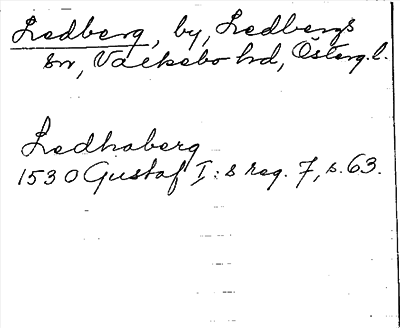 Ledberg, by, Ledbergs
sn, Valkebo hd, Österg.l.
Ledhaberg
1530 Gustaf I:s reg. 7, s. 63.